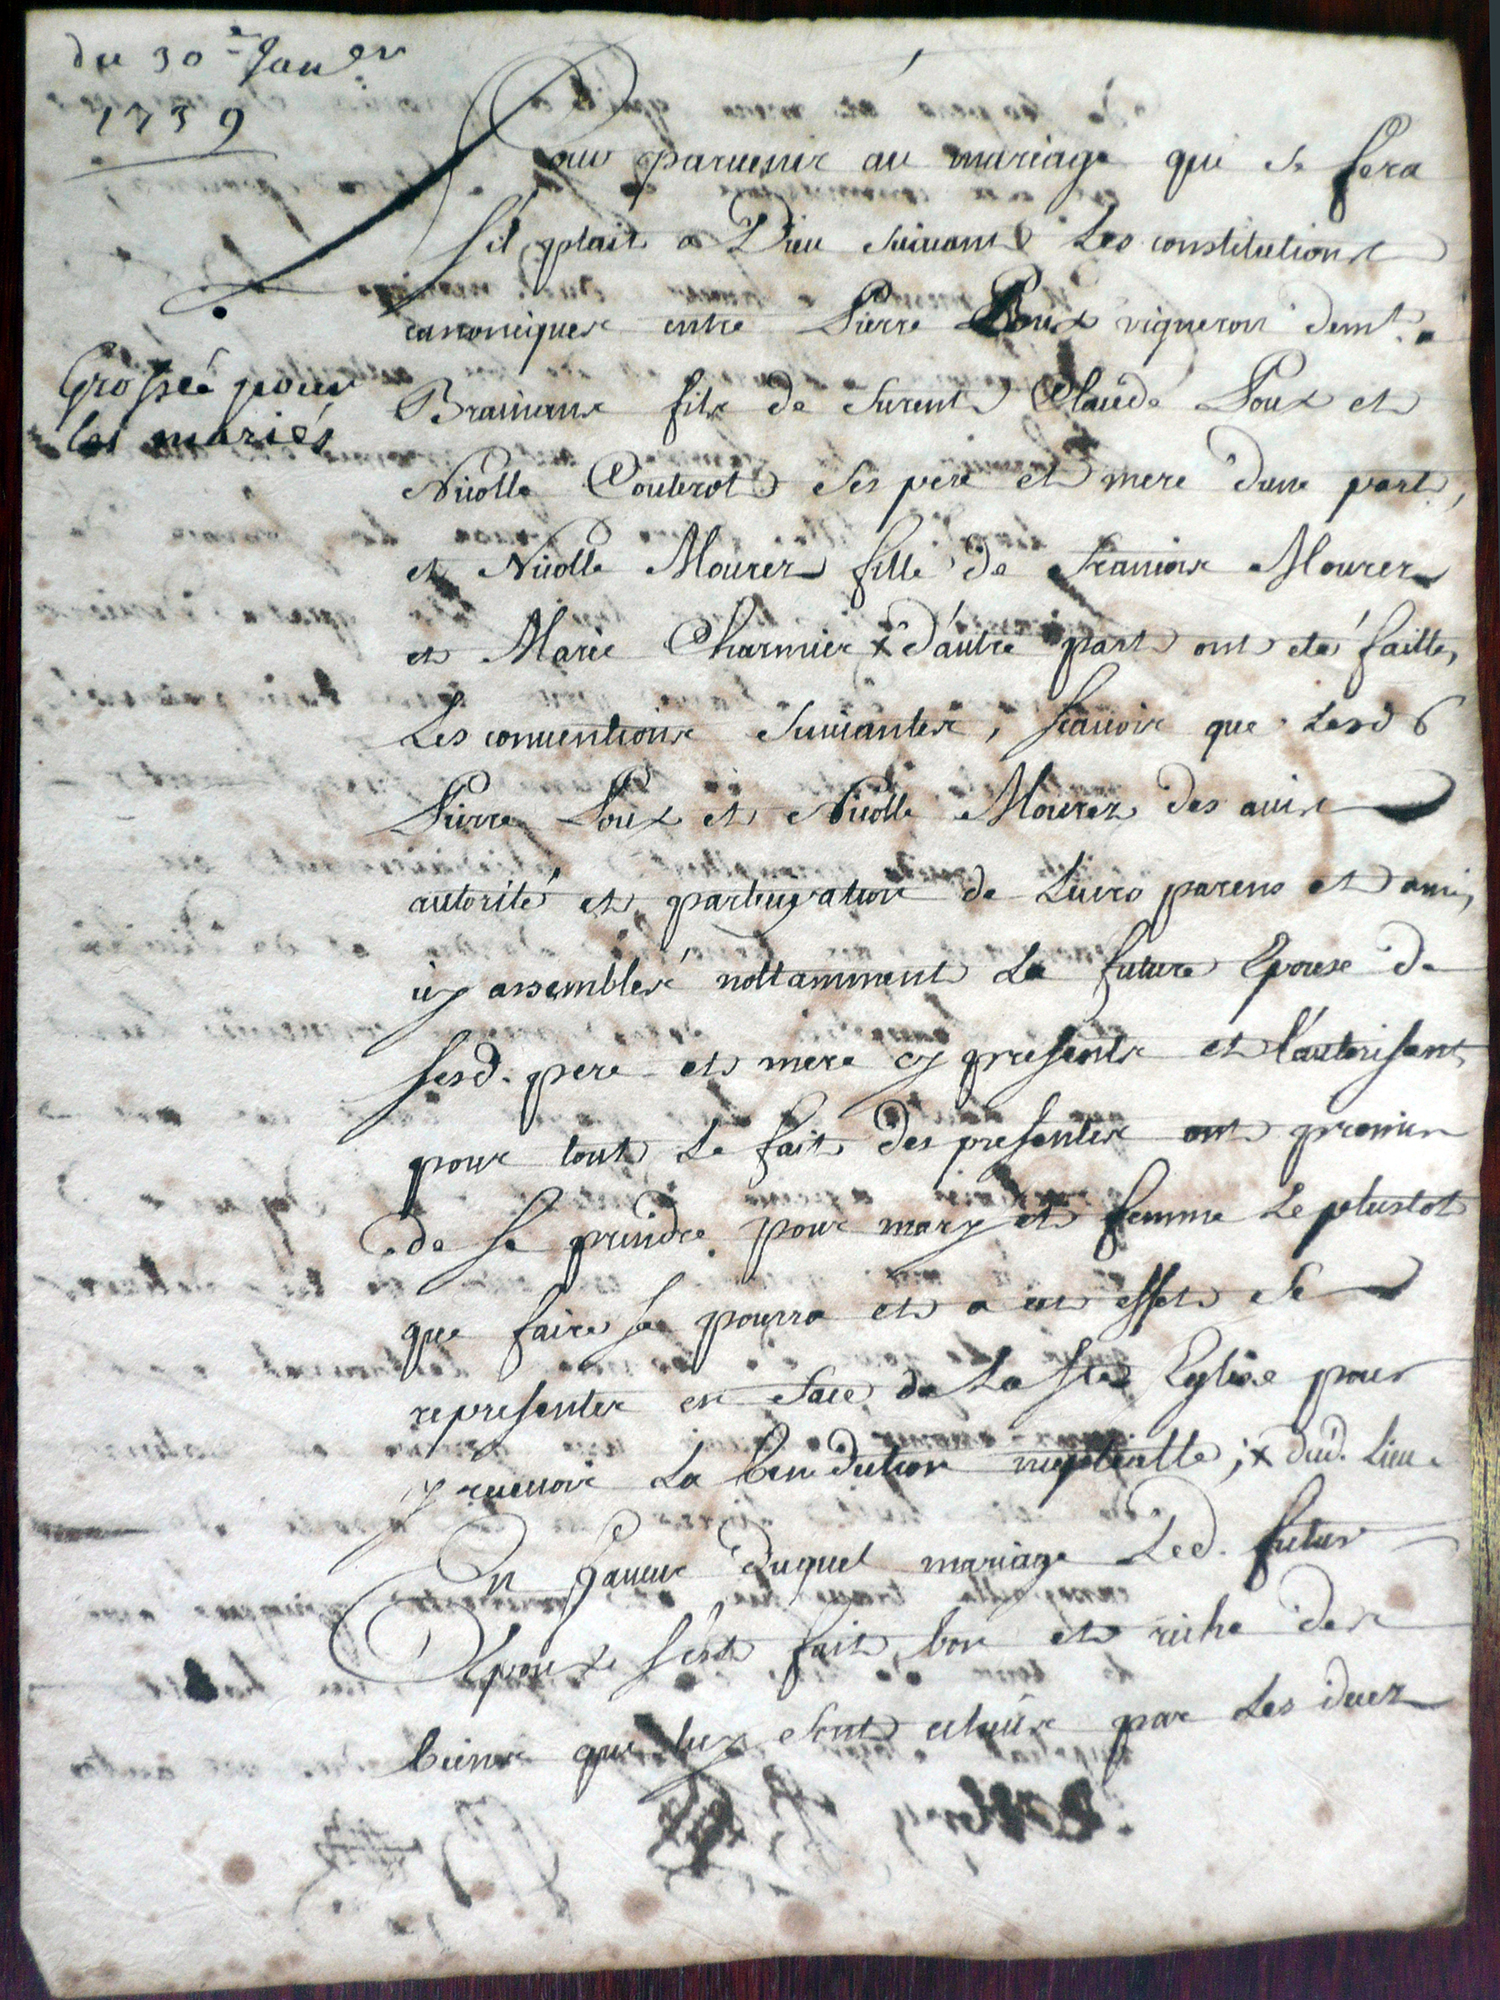 du 30e Janver
1739
Pour paruenir au mariage qui se fera
s'il plait a Dieu suiuant Les constitutions
canonicques entre Pierre Poux vigneron demt. a
Brainans fils de furent Claude Poux et
Nicolle Couterot ses pere et mere d'une part,
Grossé pour
les mariés
et Nicolle Mourez fille de francois Mourez
et Marie Charmier x d'autre part ont eté faittes
Les conuentions suiuantes, scauoir que Lesd
Pierre Poux et Nicolle Mourez des auis
autorité et participation de Leurs parens et amis
icy assemblés nottamment La future Epouse de
sesd. pere et mere cy presents et l'autorisant
pour tout Le fait des presentes ont promis
de se prendre pour mary et femme Le plustot
que faire se pourra et a cet effet se
representer en face de La ste Eglise pour
y receuoir La benediction nuptialle; x dud. Lieu
En faueur duquel mariage Led. futur
Epoux s'est fait bon et riche des
biens que luy sont echus par Les